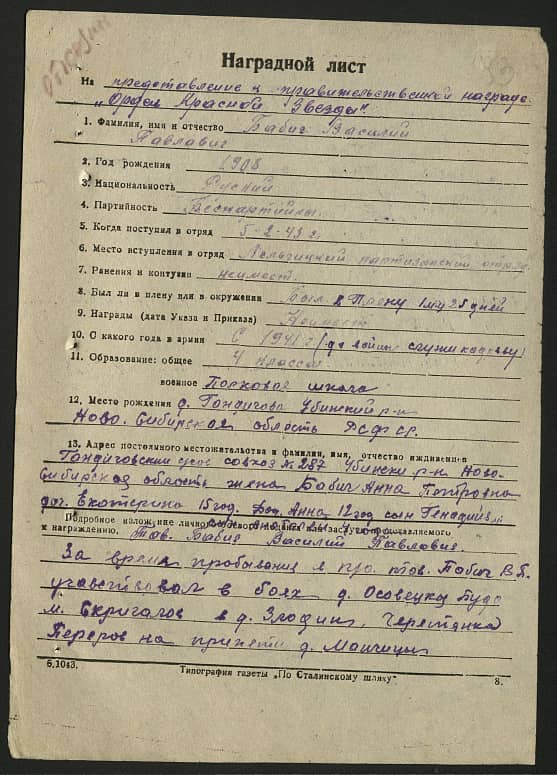 Наградной лист
На представление к правительственной награде
„Орден Красной Звезды"
1. Фамилия, имя и отчество Бабич Василий
Павлович
2. Год рождения 1908
3. Национальность Руский
4. Партийность Беспартийны
5. Когда поступил в отряд 5-2-43 г.
6. Место вступления в отряд Лельчицкий партизанский отряд
7. Ранения и контузии неимеет.
8. Был ли в плену или в окружении Был в Плену 1 мц 25 дней
9. Награды (дата Указа и Приказа) Неимеет
10. С какого года в армии С 1941 г (до войны служил кадровую)
11. Образование: общее 4 класса
военное Полковая школа
12. Место рождения д. Гандичова Убинский р-н
Ново. Сибирская область РСФСР.
13. Адрес постоянного местожительства и фамилия, имя, отчество иждивенцев
Гандичовский совхоз № 287 Убински р-н Ново-
Сибирская область жена Бабич Анна Петровна
доч. Екатерина 15 год. Анна 12 год сын Генадий
Подробное изложение личного боевого
к награждению. Тов. Бабич Василий Павлович.
За время пробывания в п/о тов. Бабич В.П.
участвовал в боях д. Осовецкая Буда
м. Скригалов в д. Злодин, Черетянка
Переров на припети д. Манчицы
6.1043.
Типография газеты „По Сталинскому шляху"
8.